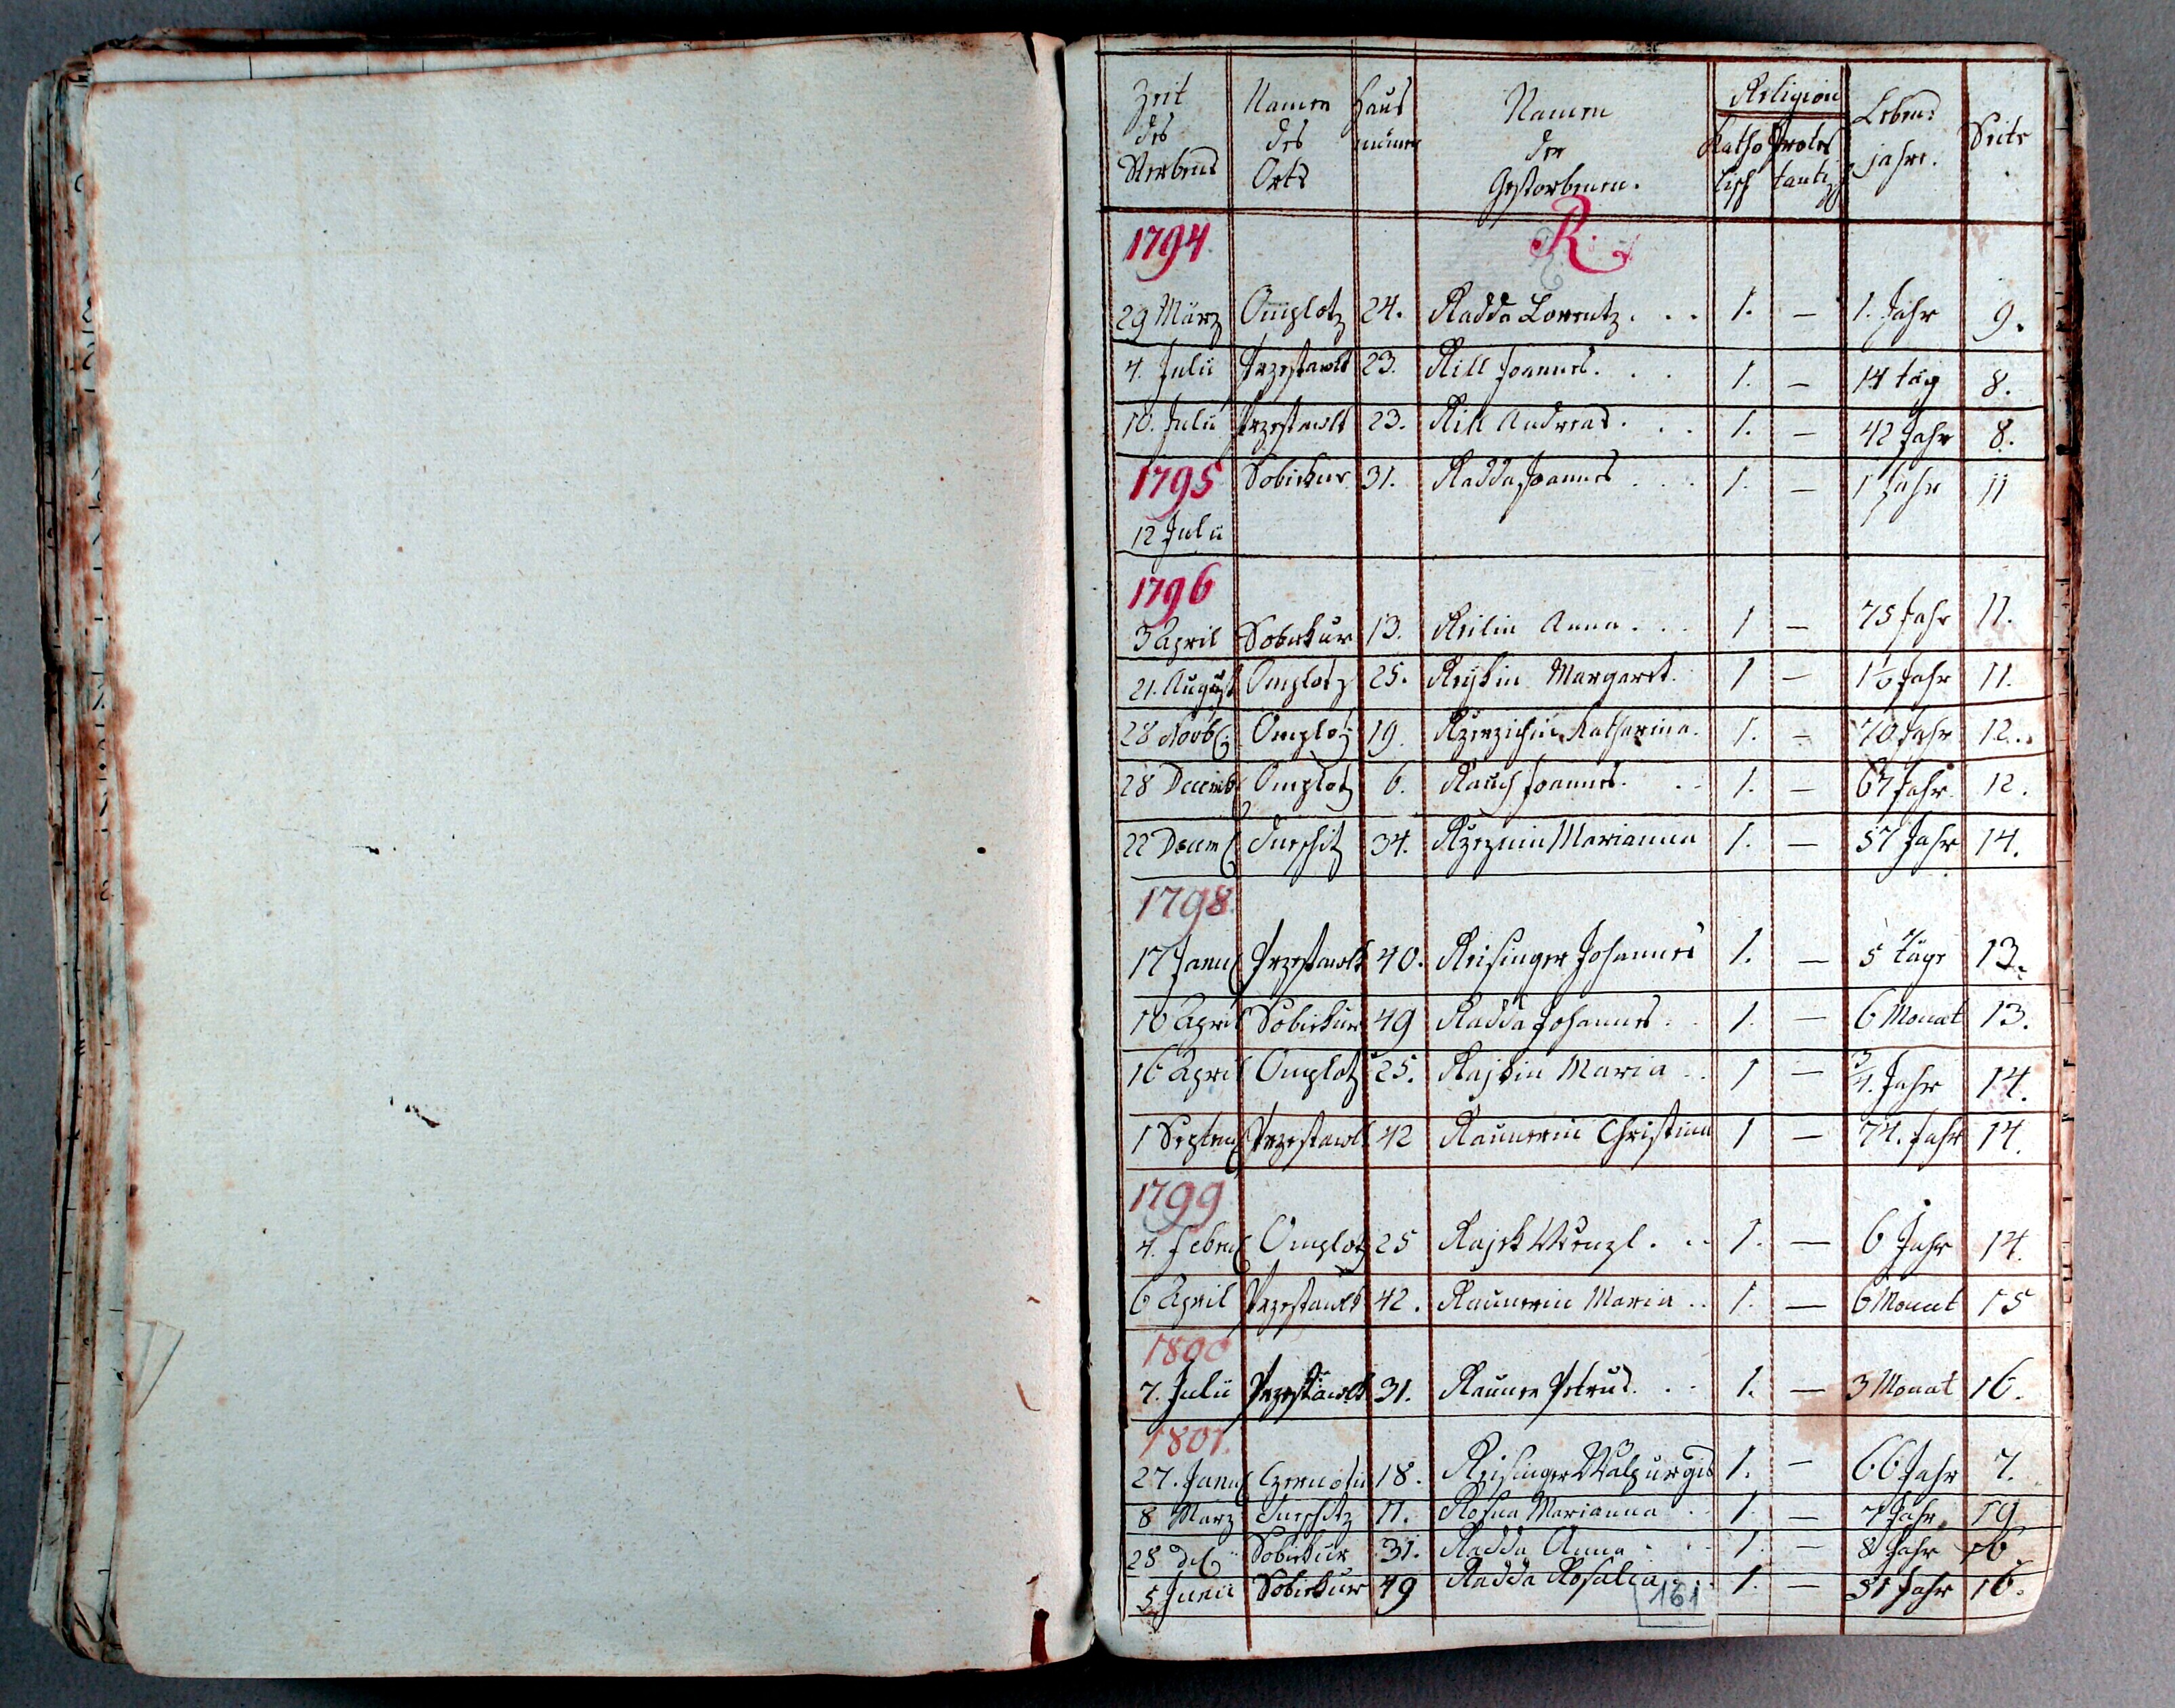 Zeit des Sterbens | Namen des Orts | Haus numer | Namen der Gestorbenen. | Religion Katholisch Protestantisch | Lebensjahre. | Seite
R.
1794.
29 März Omplotz 24. Radda Lorentz. . . 1. — 1. Jahr 9.
4. Julii Przestawlk 23. Rill Joannes. . . 1. — 14 täg 8.
10. Julii Przestawlk 23. Rill Andreas. . . 1. — 42 Jahr 8.
1795 Sobiekur 31. Radda Joannes . . . 1. — 1 Jahr 11
12 Julii
1796
3 April Sobiekur 13. Reilin Anna. . . 1 — 75 Jahr 11.
21. August Omplotz 25. Reyskin Margaret. 1 — Jahr 11.
28 Novb Omplotz 19. Katharina. 1. — 70 Jahr 12.
28 Decemb Omplotz 6. Rauch Joannes. . . 1. — 67 Jahr 12.
22 Decem 34. Marianna 1. — 57 Jahr 14.
1798.
17 Janu Przestawlk 40. Reisinger Johannes 1. — 5 Täge 13.
10 April Sobiekur 49 Radda Johannes. . 1. — 6 Monat 13.
16 April Omplotz 25. Rajskin Maria . . 1 — 3/4. Jahr 14.
1 Septem Przestawlk 42 Raunerin Christina 1 — 74. Jahr 14.
1799
4. Febru Omplotz 25 Rajsk Wenzl. . . 1. — 6 Jahr 14.
6 April Przestawlk 42. Raunerin Maria . . 1. — 6 Monat 15
1800
7. Julii Przestawlk 31. Rauner Petrus. . . 1. — 3 Monat 16.
1801.
27. Janu Czernotin 18. Reisinger Walpurgis 1. — 66 Jahr 7.
8 März 11. Marianna . . 1. — 7 Jahr 19
28 Sobiekur 31. Radda Anna . . . 1. — 8 Jahr 16
5 Junii Sobiekur 49 Radda Rosalia . . 1. — 51 Jahr 16.
161